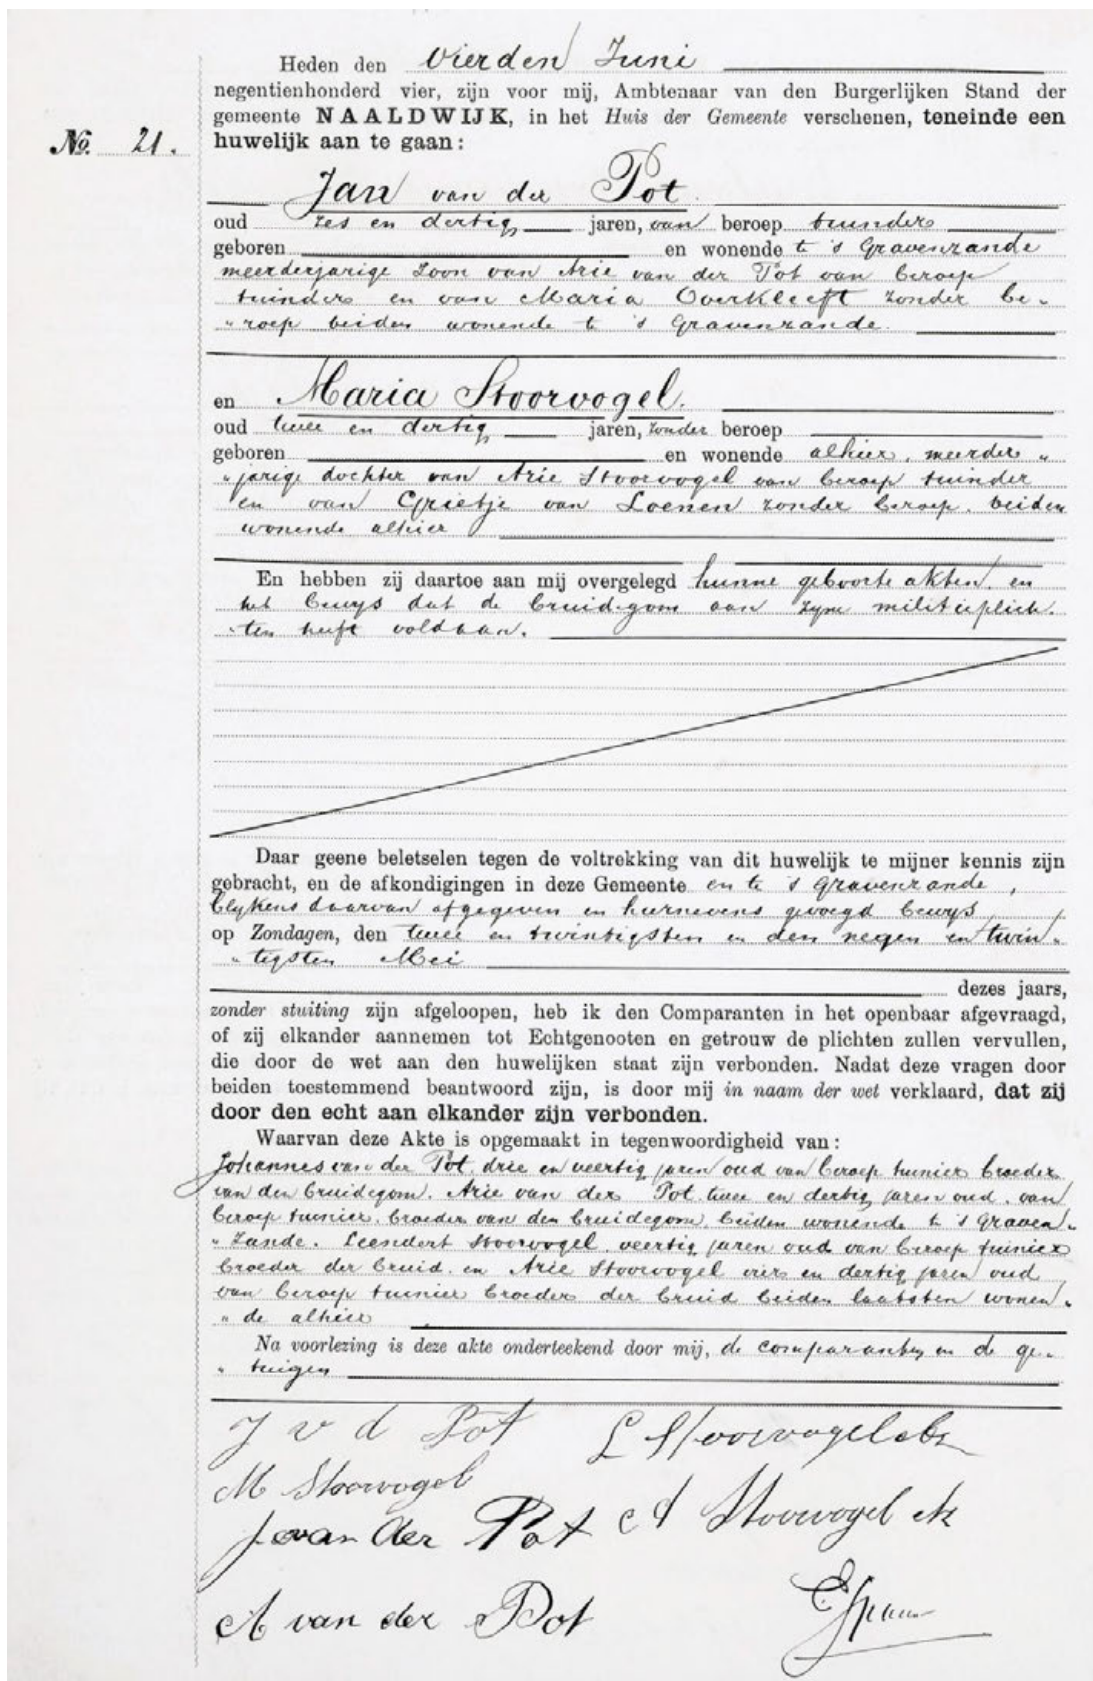 Heden den vierden Juni
negentienhonderd vier, zijn voor mij, Ambtenaar van den Burgerlijken Stand der
gemeente NAALDWIJK, in het Huis der Gemeente verschenen, teneinde een
No. 21.
huwelijk aan te gaan:
Jan van der Pot.
oud zes en dertig jaren, van beroep tuinder
geboren en wonende te 's Gravenzande
meerderjarige zoon van Arie van der Pot van beroep
tuinder en van Maria Overkleeft zonder be-
"roep beiden wonende te 's Gravenzande.
en Maria Stoorvogel.
oud twee en dertig jaren, zonder beroep
geboren en wonende alhier, meerder "
"jarige dochter van Arie Stoorvogel van beroep tuinder
en van Grietje van Loenen zonder beroep. beiden
wonende alhier
En hebben zij daartoe aan mij overgelegd hunne geboorte akten, en
het bewys dat de bruidegom aan zyne militieplich-
"ten heeft voldaan.
Daar geene beletselen tegen de voltrekking van dit huwelijk te mijner kennis zijn
gebracht, en de afkondigingen in deze Gemeente en te 's Gravenzande,
blykens daarvan afgegeven en hiernevens gevoegd bewys,
op Zondagen, den twee en twintigsten en den negen en twin"
"tigsten Mei
dezes jaars,
zonder stuiting zijn afgeloopen, heb ik den Comparanten in het openbaar afgevraagd,
of zij elkander aannemen tot Echtgenooten en getrouw de plichten zullen vervullen,
die door de wet aan den huwelijken staat zijn verbonden. Nadat deze vragen door
beiden toestemmend beantwoord zijn, is door mij in naam der wet verklaard, dat zij
door den echt aan elkander zijn verbonden.
Waarvan deze Akte is opgemaakt in tegenwoordigheid van:
Johannes van der Pot, drie en veertig jaren oud van beroep tuinier broeder
van den bruidegom. Arie van der Pot twee en dertig jaren oud, van
beroep tuinier, broeder van den bruidegom, beiden wonende te 's Graven"
"zande. Leendert Stoorvogel, veertig jaren oud van beroep tuinier
broeder der bruid. en Arie Stoorvogel vier en dertig jaren oud
van beroep tuinier broeder der bruid beiden laatsten wonen"
"de alhier
Na voorlezing is deze akte onderteekend door mij, de comparanten en de ge-
"tuigen
J v d Pot L Stoorvogel
M Stoorvogel
J van der Pot A Stoorvogel
A van der Pot